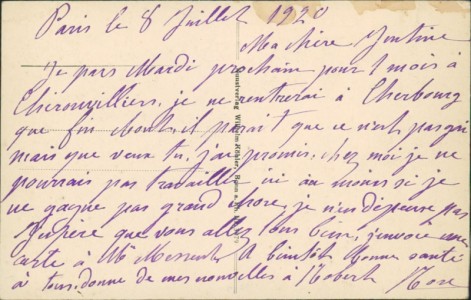 Paris le 8 Juillet 1920
Ma chère
Je pars Mardi prochain pour 1 mois à
je ne rentrerai à Cherbourg
que fin Août, il paraît que ce n'est pas gai
mais que veux tu, j'ai promis, chez moi je ne
pourrais pas travailler ici au moins si je
ne gagne pas grand chose, je n'en dépense pas
J'espère que vous allez tous bien, j'envoie une
carte à Mr A bientôt Bonne santé
à tous, donne de mes nouvelles à Robert Rose